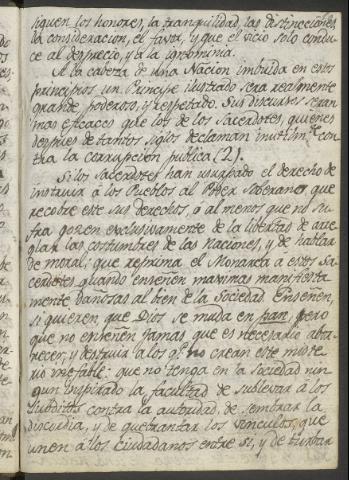 siguen los honores, la tranquilidad, las distinciones,
la consideracion, el favor, y que el vicio solo condu-
ce al desprecio, y à la ignominia.
A la cabeza de una Nacion imbuida en estos
principios un Principe ilustrado será realmente
grande, poderoso, y respetado. Sus discursos serán
mas eficaces que los de los Sacerdotes, quienes
despues de tantos siglos declaman inutilm.te con-
tra la corrupcion publica (2).
Si los Sacerdotes han usurpado el derecho de
instruir à los Pueblos al Poder Soberano, que
recobre este sus derechos, ó al menos que no su-
fra gozen exclusivamente de la libertad de arre-
glar las costumbres de las Naciones, y de hablar
de moral; que reprima el Monarca a estos Sa-
cerdotes quando enseñen maximas manifiesta-
mente dañosas al bien de la Sociedad. Enseñen,
si quieren, que Dios se muda en pan, pero
que no enseñen jamas que es necesario abor-
recer, y destruir a los q.e no crean este miste-
rio inefable: que no tenga en la Sociedad nin-
gun inspirado la facultad de sublevar á los
subditos contra la autoridad, de sembrar la
discordia, y de quebrantar los vinculos, que
unen à los ciudadanos entre si, y de turbar